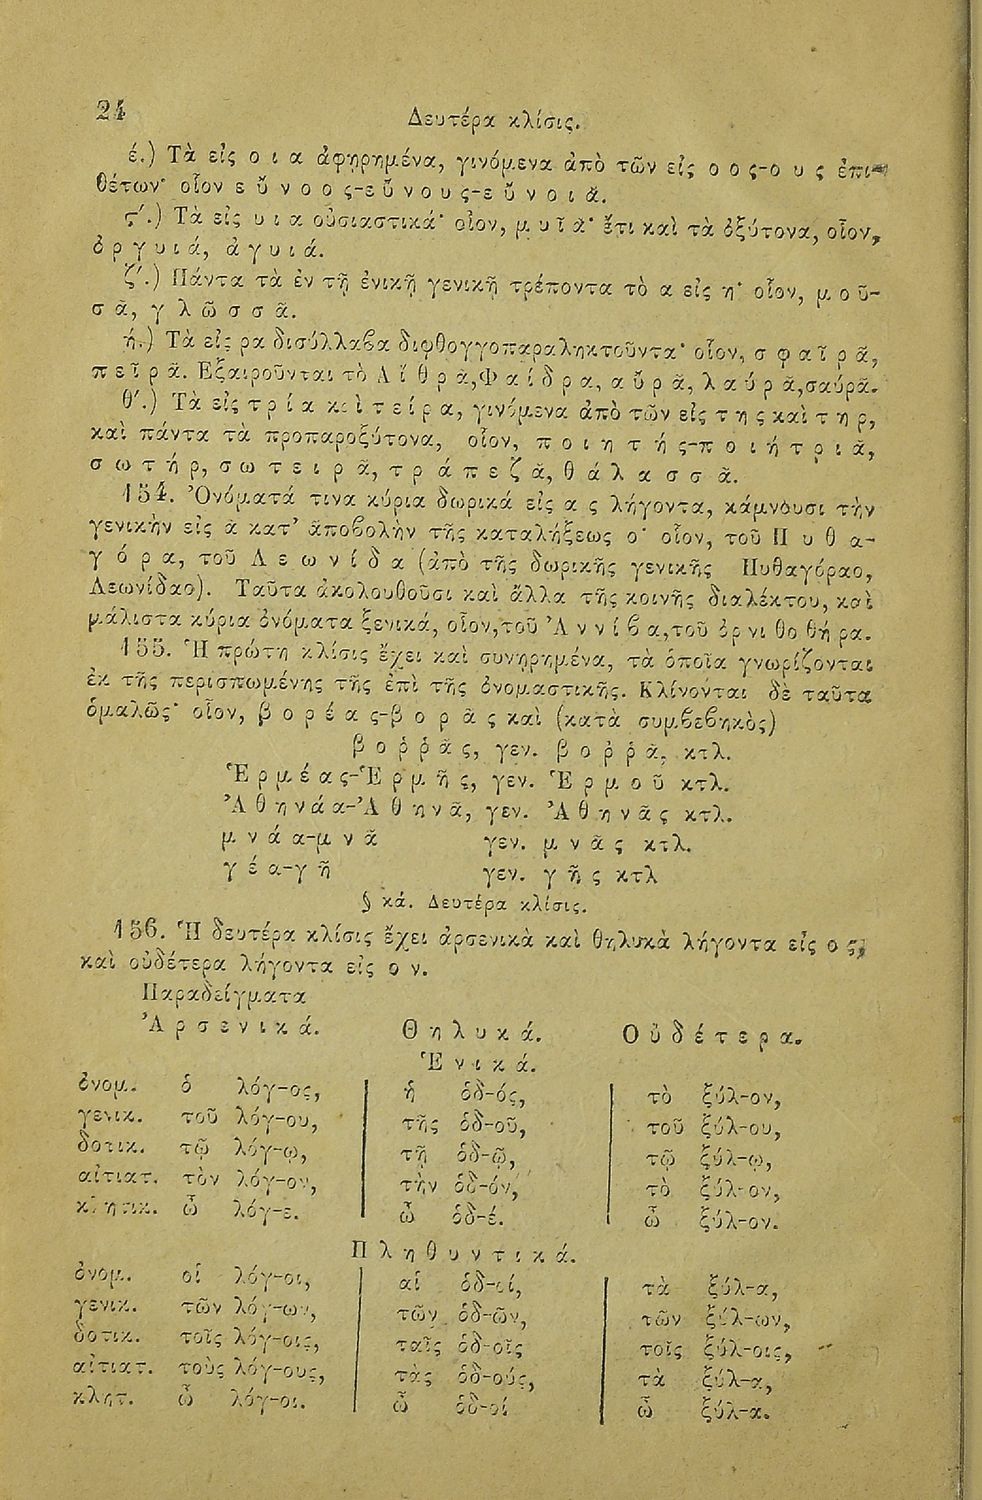 24
Δευτέρα κλίσις.
έ.) Τὰ εἰς ο ι α ἀφῃρημένα, γινόμενα ἀπὸ τῶν εἰς ο ο ς-ο υ ς ἐπι-
θέτων· οἷον ε ὔ ν ο ο ς-ε ὔ ν ο υ ς-ε ὔ ν ο ι ᾰ.
ς΄.) Τὰ εἰς υ ι α οὐσιαστικά· οἷον, μ υ ῖ ᾰ· ἔτι καὶ τὰ ὀξύτονα, οἷον,
ὀ ρ γ υ ι ά, ἀ γ υ ι ά.
ζ΄.) Πάντα τὰ ἐν τῇ ἑνικῇ γενικῇ τρέποντα τὸ α εἰς η· οἷον, μ ο ῦ-
σ ᾰ, γ λ ῶ σ σ ᾰ.
ή.) Τὰ εἰς ρα δισύλλαβα διφθογγοπαραληκτοῦντα· οἷον, σ φ α ῖ ρ ᾰ,
π ε ῖ ρ ᾰ. Ἐξαιροῦνται τὸ Α ἴ θ ρ ᾱ, Φ α ί δ ρ α, α ὔ ρ ᾱ, λ α ύ ρ ᾱ, σαύρᾱ.
θ΄.) Τὰ εἰς τ ρ ί α κ α ὶ τ ε ί ρ α, γινόμενα ἀπὸ τῶν εἰς τ η ς καὶ τ η ρ,
καὶ πάντα τὰ προπαροξύτονα, οἷον, π ο ι η τ ή ς-π ο ι ή τ ρ ι ᾰ,
σ ω τ ή ρ, σ ω τ ε ι ρ ᾰ, τ ρ ά π ε ζ ᾰ, θ ά λ α σ σ ᾰ.
154. Ὀνόματά τινα κύρια δωρικά εἰς α ς λήγοντα, κάμνουσι τὴν
γενικὴν εἰς ᾱ κατ᾽ ἀποβολὴν τῆς καταλήξεως ο· οἷον, τοῦ Π υ θ α-
γ ό ρ α, τοῦ Λ ε ω ν ί δ α (ἀπὸ τῆς δωρικῆς γενικῆς Πυθαγόραο,
Λεωνίδαο). Ταῦτα ἀκολουθοῦσι καὶ ἄλλα τῆς κοινῆς διαλέκτου, καὶ
μάλιστα κύρια ὀνόματα ξενικά, οἷον, τοῦ Ἀ ν ν ί β α, τοῦ ὀρ νι θο θή ρα.
155. Ἡ πρώτη κλίσις ἔχει καὶ συνῃρημένα, τὰ ὁποῖα γνωρίζονται
ἐκ τῆς περισπωμένης τῆς ἐπὶ τῆς ὀνομαστικῆς. Κλίνονται δὲ ταῦτα
ὁμαλῶς· οἷον, β ο ρ έ α ς-β ο ρ ᾶ ς καὶ (κατὰ συμβεβηκὸς)
β ο ῤ ῥ ᾶ ς, γεν. β ο ῤ ῥ ᾶ, κτλ.
Ἑ ρ μ έ α ς-Ἑ ρ μ ῆ ς, γεν. Ἑ ρ μ ο ῦ κτλ.
Ἀ θ η ν ά α-Ἀ θ η ν ᾶ, γεν. Ἀ θ η ν ᾶ ς κτλ.
μ ν ά α-μ ν ᾶ γεν. μ ν ᾶ ς κτλ.
γ έ α-γ ῆ γεν. γ ῆ ς κτλ
§ κά. Δευτέρα κλίσις.
156. Ἡ δευτέρα κλίσις ἔχει ἀρσενικὰ καὶ θηλυκὰ λήγοντα εἰς ο ς,
καὶ οὐδέτερα λήγοντα εἰς ο ν.
Παραδείγματα
Ἀ ρ σ ε ν ι κ ά. Θ η λ υ κ ά. Ο ὐ δ έ τ ε ρ α.
Ἑ ν ι κ ά.
ὀνομ. ὁ λόγ-ος, ἡ ὁδ-ός, τὸ ξύλ-ον,
γενικ. τοῦ λόγ-ου, τῆς ὁδ-οῦ, τοῦ ξύλ-ου,
δοτικ. τῷ λόγ-ῳ, τῇ ὁδ-ῷ, τῷ ξύλ-ῳ,
αἰτιατ. τὸν λόγ-ον, τὴν ὁδ-όν, τὸ ξύλ-ον,
κλητικ. ὦ λόγ-ε. ὦ ὁδ-έ. ὦ ξύλ-ον.
Π λ η θ υ ν τ ι κ ά.
ὀνομ. οἱ λόγ-οι, αἱ ὁδ-οί, τὰ ξύλ-α,
γενικ. τῶν λόγ-ων, τῶν ὁδ-ῶν, τῶν ξύλ-ων,
δοτικ. τοῖς λόγ-οις, ταῖς ὁδ-οῖς τοῖς ξύλ-οις,
αἰτιατ. τοὺς λόγ-ους, τὰς ὁδ-ούς, τὰ ξύλ-α,
κλητ. ὦ λόγ-οι. ὦ ὁδ-οί ὦ ξύλ-α.